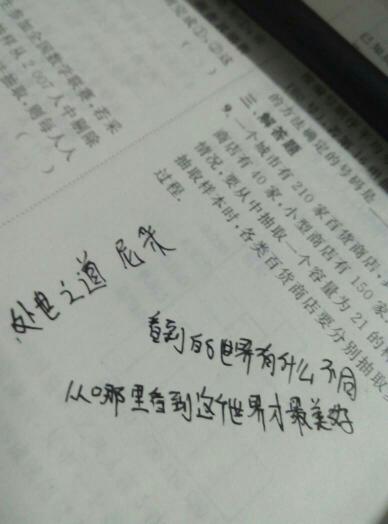 在参加全国数学联赛，若采
样从2 007人中剔除
抽取，则每人入
（ ）
的方法确定的号码是
三、解答题
9. 一个城市有210家百货商店，
商店有40家，小型商店有150家
情况，要从中抽取一个容量为21的
抽取样本时，各类百货商店要分别抽取
过程.
处世之道 尼采
看到的世界有什么不同
从哪里看到这个世界才最美好